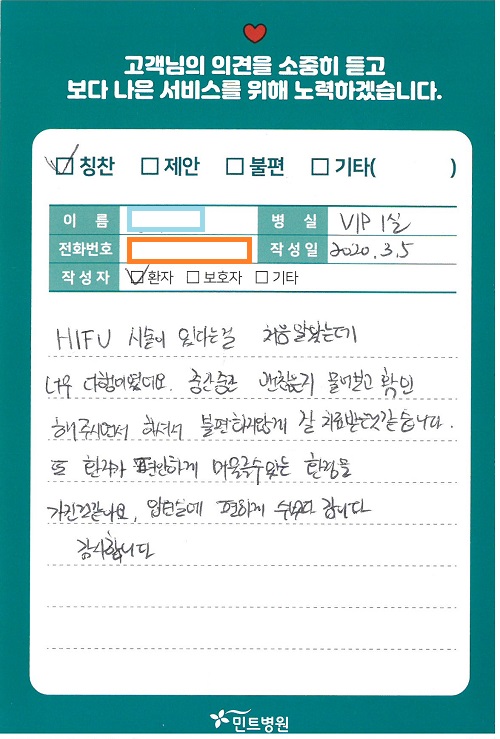 고객님의 의견을 소중히 듣고
보다 나은 서비스를 위해 노력하겠습니다.
칭찬 제안 불편 기타( )
이 름 병 실 VIP 1실
전화번호 작성일 2020.3.5
작성자 환자 보호자 기타
HIFU 시술이 있다는걸 처음 알았는데
너무 다행이였네요. 중간중간 괜찮은지 물어보고 확인
해주시면서 하셔서 불편하지않게 잘 치료받은것같습니다.
또 환자가 편안하게 머물를수있는 환경을
가진것같네요, 입원실에 편하게 쉬다 갑니다
감사합니다
민트병원